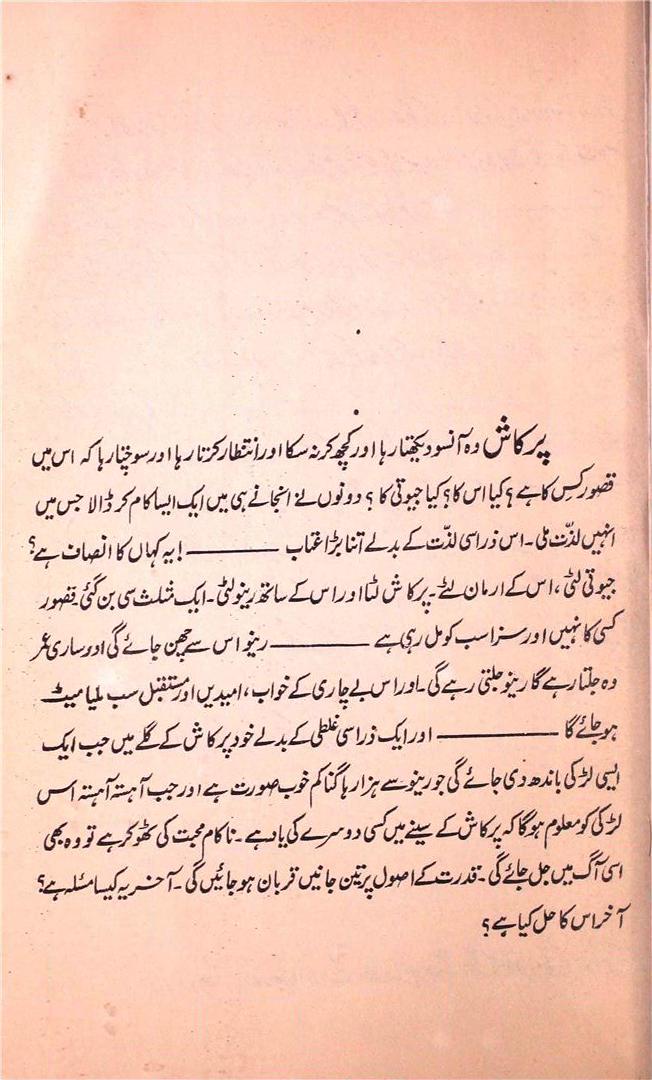 پرکاش وہ آنسو دیکھتا رہا اور کچھ کر نہ سکا اور انتظار کرتا رہا اور سوچتا رہا کہ اس میں
قصور کس کا ہے؟ کیا اس کا؟ کیا جیوتی کا؟ دونوں نے انجانے ہی میں ایک ایسا کام کر ڈالا جس میں
انہیں لذّت ملی۔ اس ذرا سی لذّت کے بدلے اتنا بڑا عتاب ———— ! یہ کہاں کا انصاف ہے؟
جیوتی لٹی، اس کے ارمان لٹے۔ پرکاش لٹا اور اس کے ساتھ رینو لٹی۔ ایک مثلث سی بن گئی۔ قصور
کسی کا نہیں اور سزا سب کو مل رہی ہے ———— رینو اس سے چھن جائے گی اور ساری عمر
وہ جلتا رہے گا رینو جلتی رہے گی۔ اور اس بے چاری کے خواب، امیدیں اور مستقبل سب ملیا میٹ
ہو جائے گا ———— اور ایک ذرا سی غلطی کے بدلے خود پرکاش کے گلے میں جب ایک
ایسی لڑکی باندھ دی جائے گی جو رینو سے ہزار ہا گنا کم خوب صورت ہے اور جب آہستہ آہستہ اس
لڑکی کو معلوم ہوگا کہ پرکاش کے سینے میں کسی دوسرے کی یاد ہے۔ ناکام محبت کی ٹھوکر ہے تو وہ بھی
اسی آگ میں جل جائے گی۔ قدرت کے اصول پر تین جانیں قربان ہو جائیں گی۔ آخر یہ کیسا مسئلہ ہے؟
آخر اس کا حل کیا ہے؟